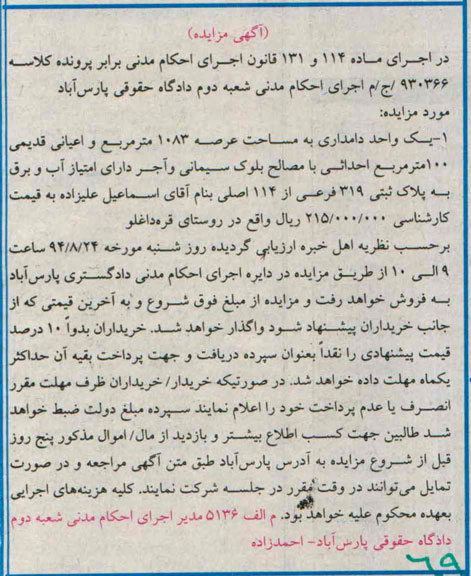 (آگهی مزایده)
در اجرای ماده ۱۱۴ و ۱۳۱ قانون اجرای احکام مدنی برابر پرونده کلاسه
۹۳۰۳۶۶ /ج/م اجرای احکام مدنی شعبه دوم دادگاه حقوقی پارس‌آباد
مورد مزایده:
۱-یک واحد دامداری به مساحت عرصه ۱۰۸۳ مترمربع و اعیانی قدیمی
۱۰۰مترمربع احداثی با مصالح بلوک سیمانی وآجر دارای امتیاز آب و برق
به پلاک ثبتی ۳۱۹ فرعی از ۱۱۴ اصلی بنام آقای اسماعیل علیزاده به قیمت
کارشناسی ۲۱۵/۰۰۰/۰۰۰ ریال واقع در روستای قره‌داغلو
برحسب نظریه اهل خبره ارزیابی گردیده روز شنبه مورخه ۹۴/۸/۲۴ ساعت
۹ الی ۱۰ از طریق مزایده در دایره اجرای احکام مدنی دادگستری پارس‌آباد
به فروش خواهد رفت و مزایده از مبلغ فوق شروع و به آخرین قیمتی که از
جانب خریداران پیشنهاد شود واگذار خواهد شد. خریداران بدواً ۱۰ درصد
قیمت پیشنهادی را نقداً بعنوان سپرده دریافت و جهت پرداخت بقیه آن حداکثر
یکماه مهلت داده خواهد شد. در صورتیکه خریدار/ خریداران ظرف مهلت مقرر
انصرف یا عدم پرداخت خود را اعلام نمایند سپرده مبلغ دولت ضبط خواهد
شد طالبین جهت کسب اطلاع بیشتر و بازدید از مال/ اموال مذکور پنج روز
قبل از شروع مزایده به آدرس پارس‌آباد طبق متن آگهی مراجعه و در صورت
تمایل می‌توانند در وقت مقرر در جلسه شرکت نمایند. کلیه هزینه‌های اجرایی
بعهده محکوم علیه خواهد بود. م الف ۵۱۳۶ مدیر اجرای احکام مدنی شعبه دوم
دادگاه حقوقی پارس‌آباد- احمدزاده
۶۹